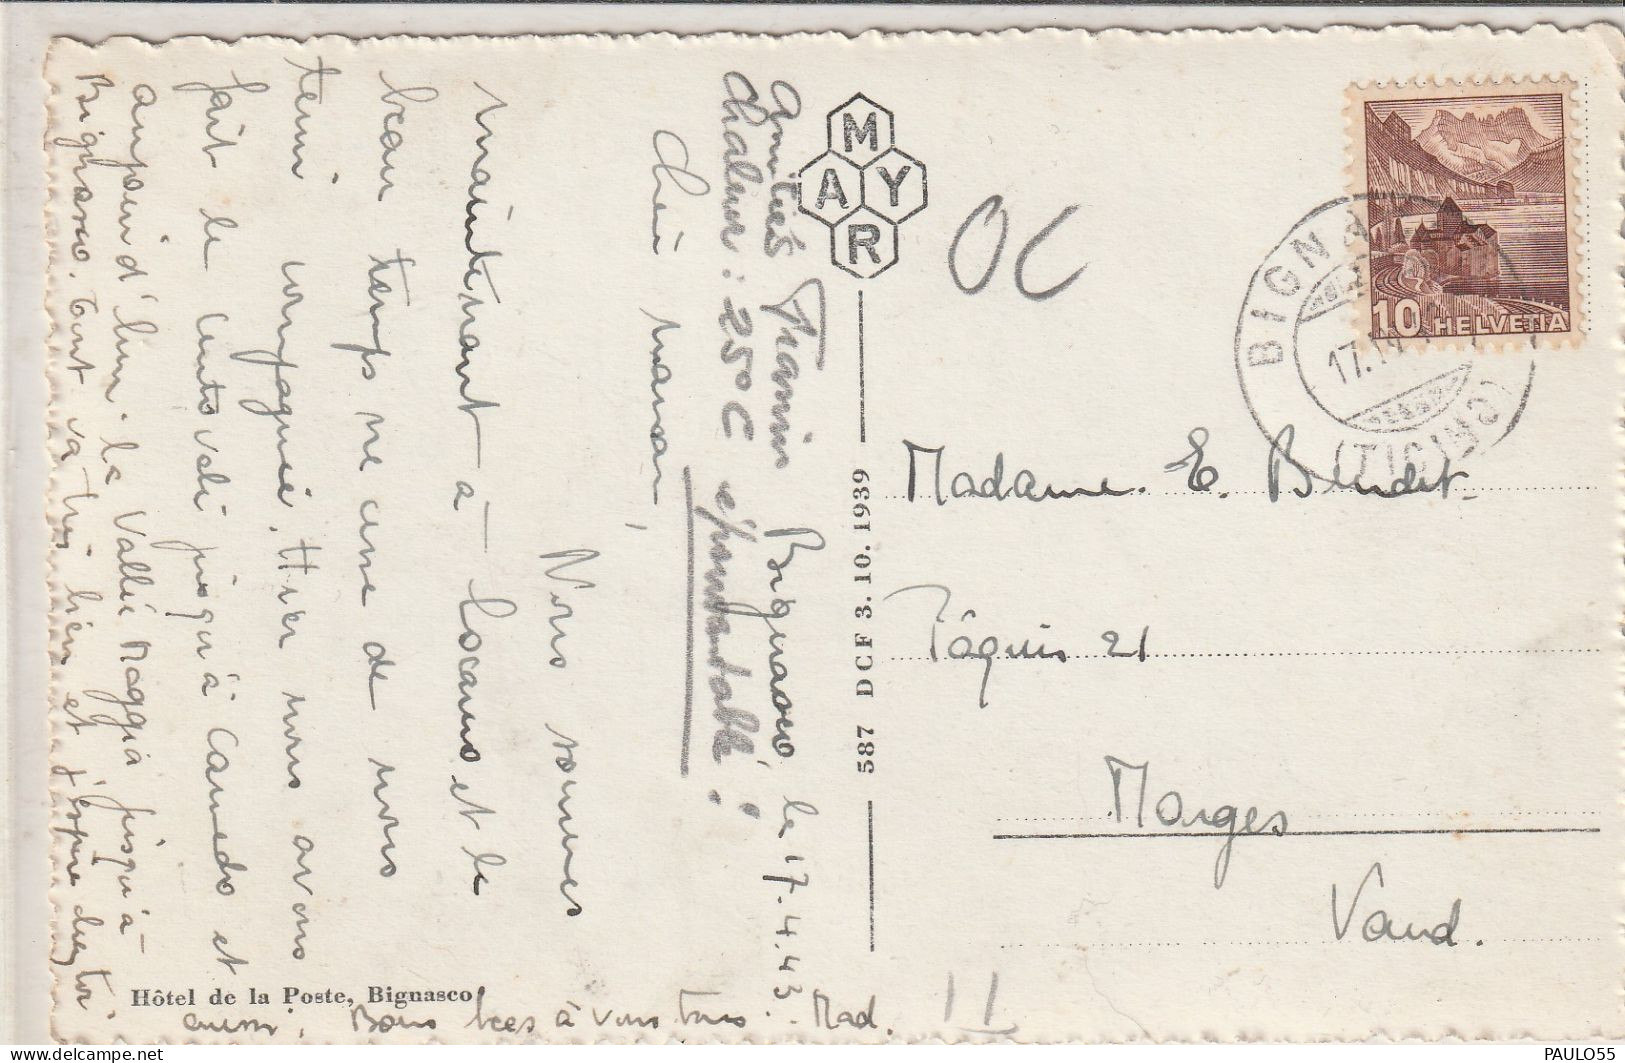 Bignasco le 17.4.43
Chère maman,
Nous sommes
maintenant à Locarno et le
beau temps ne cesse de nous
tenir compagnie. Hier nous avons
fait le Centovalli jusqu'à Camedo et
aujourd'hui la Vallée Maggia jusqu'à
Bignasco. Tout va très bien et j'espère chez toi
aussi. Bons becs à vous tous. Mad.
Amitiés
chaleur: 25° C épouvantable!
MAYR
587 DCF 3. 10. 1939
Hôtel de la Poste, Bignasco
OC
II
10 HELVETIA
BIGNA
(TICINO)
17.
Madame. E. Bludet
Pâquis 21
Morges
Vaud.
PAULO55
delcampe.net